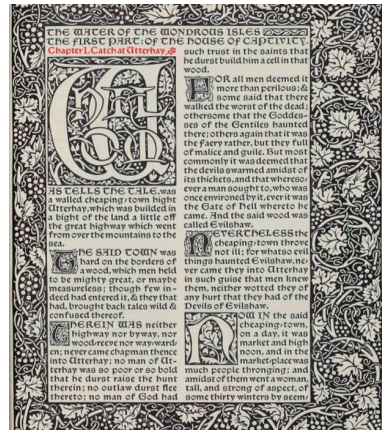 THE WATER OF THE WONDROUS ISLES
THE FIRST PART: OF THE HOUSE OF CAPTIVITY.
Chapter I. Catch at Utterhay.
Whilom
AS TELLS THE TALE, was
a walled cheaping-town hight
Utterhay, which was builded in
a bight of the land a little off
the great highway which went
from over the mountains to the
sea.
THE SAID TOWN was
hard on the borders of
a wood, which men held
to be mighty great, or maybe
measureless; though few in-
deed had entered it, & they that
had, brought back tales wild &
confused thereof.
THEREIN WAS neither
highway nor byway, nor
wood-reeve nor way-ward-
en; never came chapman thence
into Utterhay; no man of Ut-
terhay was so poor or so bold
that he durst raise the hunt
therein; no outlaw durst flee
thereto; no man of God had
such trust in the saints that
he durst build him a cell in that
wood.
FOR all men deemed it
more than perilous; &
some said that there
walked the worst of the dead;
othersome that the Goddes-
ses of the Gentiles haunted
there; others again that it was
the faery rather, but they full
of malice and guile. But most
commonly it was deemed that
the devils swarmed amidst of
its thickets, and that whereso-
ever a man sought to, who was
once environed by it, ever it was
the Gate of Hell whereto he
came. And the said wood was
called Evilshaw.
NEVERTHELESS the
cheaping-town throve
not ill; for whatso evil
things haunted Evilshaw, ne-
ver came they into Utterhay
in such guise that men knew
them, neither wotted they of
any hurt that they had of the
Devils of Evilshaw.
NOW IN the said
cheaping-town,
on a day, it was
market and high
noon, and in the
market-place was
much people thronging; and
amidst of them went a woman,
tall, and strong of aspect, of
some thirty winters by seem-